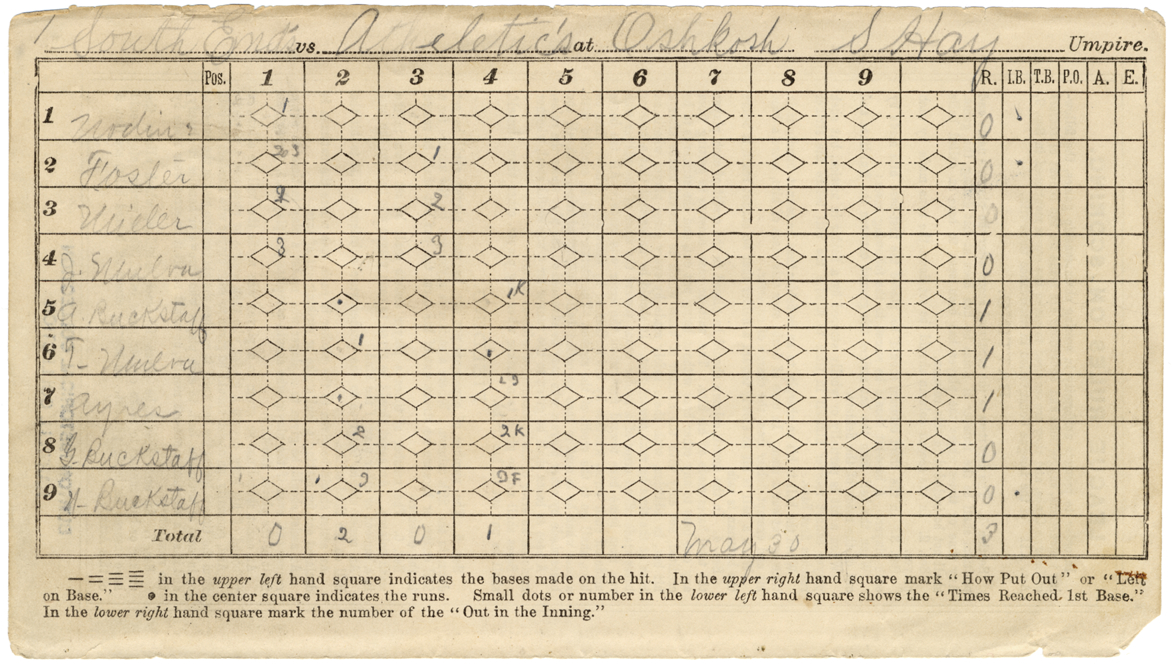 South Ends vs. Atheletics at Oshkosh S Hay Umpire.
Pos. 1 2 3 4 5 6 7 8 9 R. I.B. T.B. P.O. A. E.
1 1 0
2 Foster 203 1 0
3 2 2 0
4 J. Mulva 3 3 0
5 A. Buckstaff 1K 1
6 T- Mulva 1 1
7 Ayres 1
8 G. Buckstaff 2 2K 0
9 Buckstaff 3 3F 0
Total 0 2 0 1 May 30 3
in the upper left hand square indicates the bases made on the hit. In the upper right hand square mark "How Put Out" or "Left
on Base." • in the center square indicates the runs. Small dots or number in the lower left hand square shows the "Times Reached 1st Base."
In the lower right hand square mark the number of the "Out in the Inning."